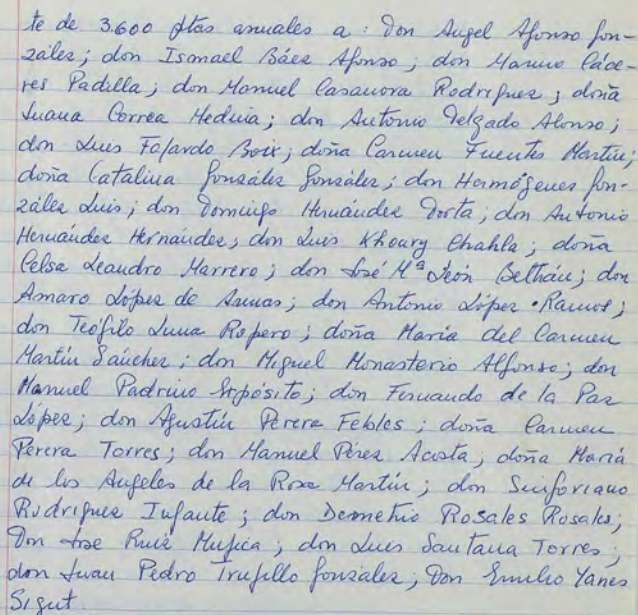 te de 3.600 ptas anuales a: Don Angel Afonso Gon-
zález; don Ismael Báez Afonso; don Marino Cáce-
res Padilla; don Manuel Casanova Rodriguez; doña
Juana Correa Medina; don Antonio Delgado Alonso;
don Luis Fajardo Boix; doña Carmen Fuentes Martín;
doña Catalina González González; don Hermógenes Gon-
zález Luis; don Domingo Hernández Dorta; don Antonio
Hernández Hernández; don Luis Khoury Chahla; doña
Celsa Leandro Marrero; don José Mª León Beltrán; don
Amaro López de Armas; don Antonio López Ramos;
don Teófilo Luna Ropero; doña Maria del Carmen
Martín Sánchez; don Miguel Monasterio Alfonso; don
Manuel Padrino Expósito; don Fernando de la Paz
López; don Agustín Perera Febles; doña Carmen
Perera Torres; don Manuel Pérez Acosta; doña Maria
de los Angeles de la Rosa Martín; don Sinforiano
Rodriguez Infante; don Demetrio Rosales Rosales;
Don Jose Ruiz Mujica; don Luis Santana Torres;
don Juan Pedro Trujillo González; Don Emilio Yanes
Sigut.